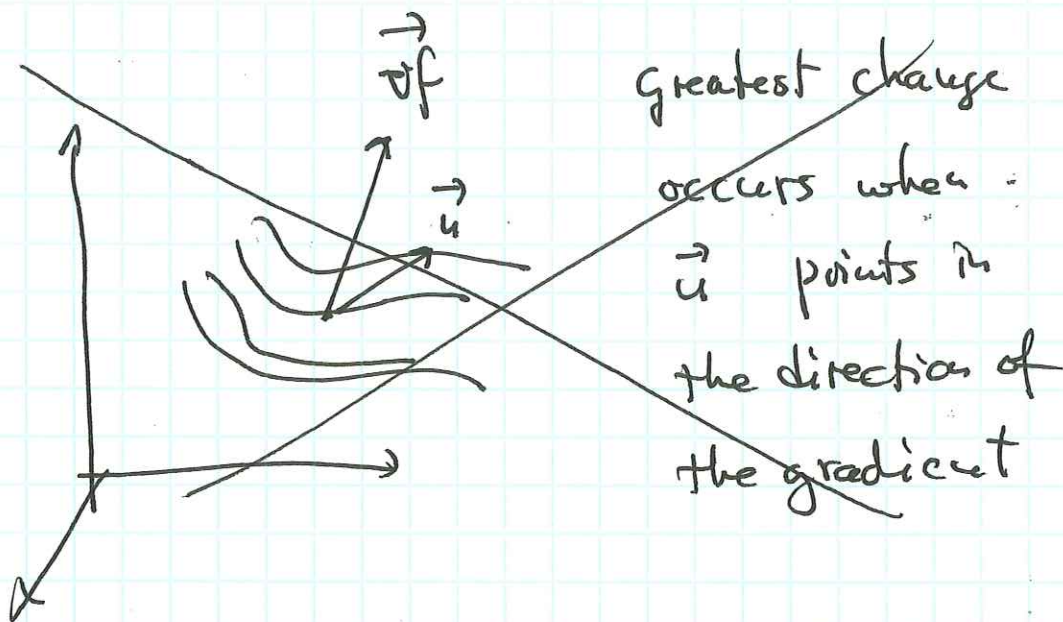 ∇f
u
Greatest change
occurs when
u points in
the direction of
the gradient